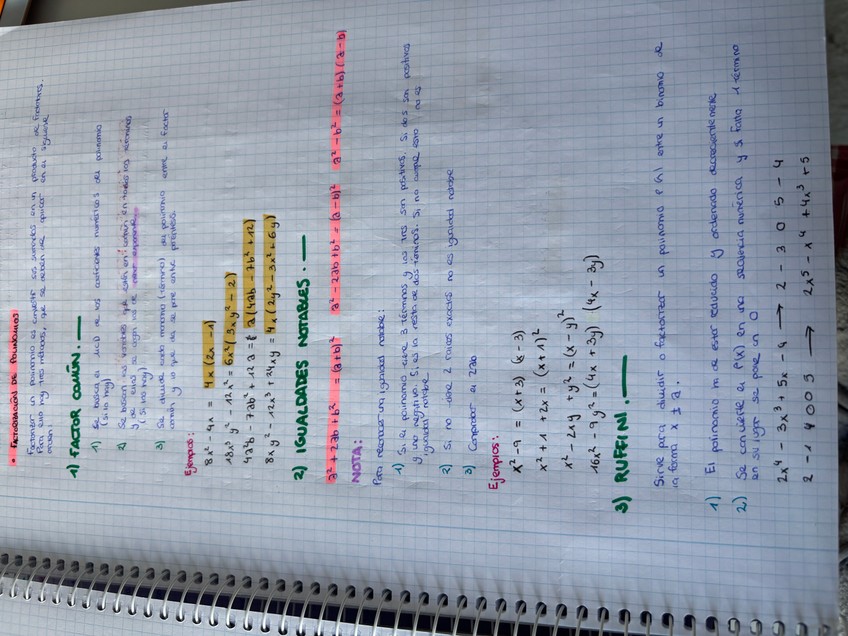 • FACTORIZACIÓN DE POLINOMIOS:
Factorizar un polinomio es convertir sus sumandos en un producto de factores.
Para ello hay tres métodos, que se deben de aplicar en el siguiente
orden:
1) FACTOR COMÚN.—
1) Se busca el MCD de los coeficientes numéricos del polinomio
(si lo hay)
2) Se buscan las variables que estén en común en todos los términos
y de ellas se coge la de menor exponente
(si las hay)
3) Se divide cada monomio (término) del polinomio entre el factor
común y lo que da se pone entre paréntesis.
Ejemplos:
8x² - 4x = 4x (2x - 1)
18x³y - 12x² = 6x² (3xy - 2)
4a²b - 7ab² + 12a = a (4ab - 7b² + 12)
8xy² - 12x³ + 24xy = 4x (2y² - 3x² + 6y)
2) IGUALDADES NOTABLES.—
a² + 2ab + b² = (a+b)² a² - 2ab + b² = (a-b)² a² - b² = (a+b) (a-b)
NOTA:
Para reconocer una igualdad notable:
1) Si el polinomio tiene 3 términos y los tres son positivos. Si dos son positivos
y uno negativo. Si es la resta de dos términos. Si no cumple esto no es
igualdad notable
2) Si no tiene 2 raíces exactas no es igualdad notable
3) Comprobar el 2ab
Ejemplos:
x² - 9 = (x+3) (x-3)
x² + 1 + 2x = (x+1)²
x² - 2xy + y² = (x-y)²
16x² - 9y² = (4x + 3y) · (4x - 3y)
3) RUFFINI.—
Sirve para dividir o factorizar un polinomio P(x) entre un binomio de
la forma x ± a.
1) El polinomio de estar reducido y ordenado decrecientemente
2) Se convierte el P(x) en una secuencia numérica y si falta 1 término
en su lugar se pone un 0
2x⁴ - 3x³ + 5x - 4 → 2 - 3 0 5 - 4
2 - 1 4 0 0 5 → 2x⁵ - x⁴ + 4x³ + 5